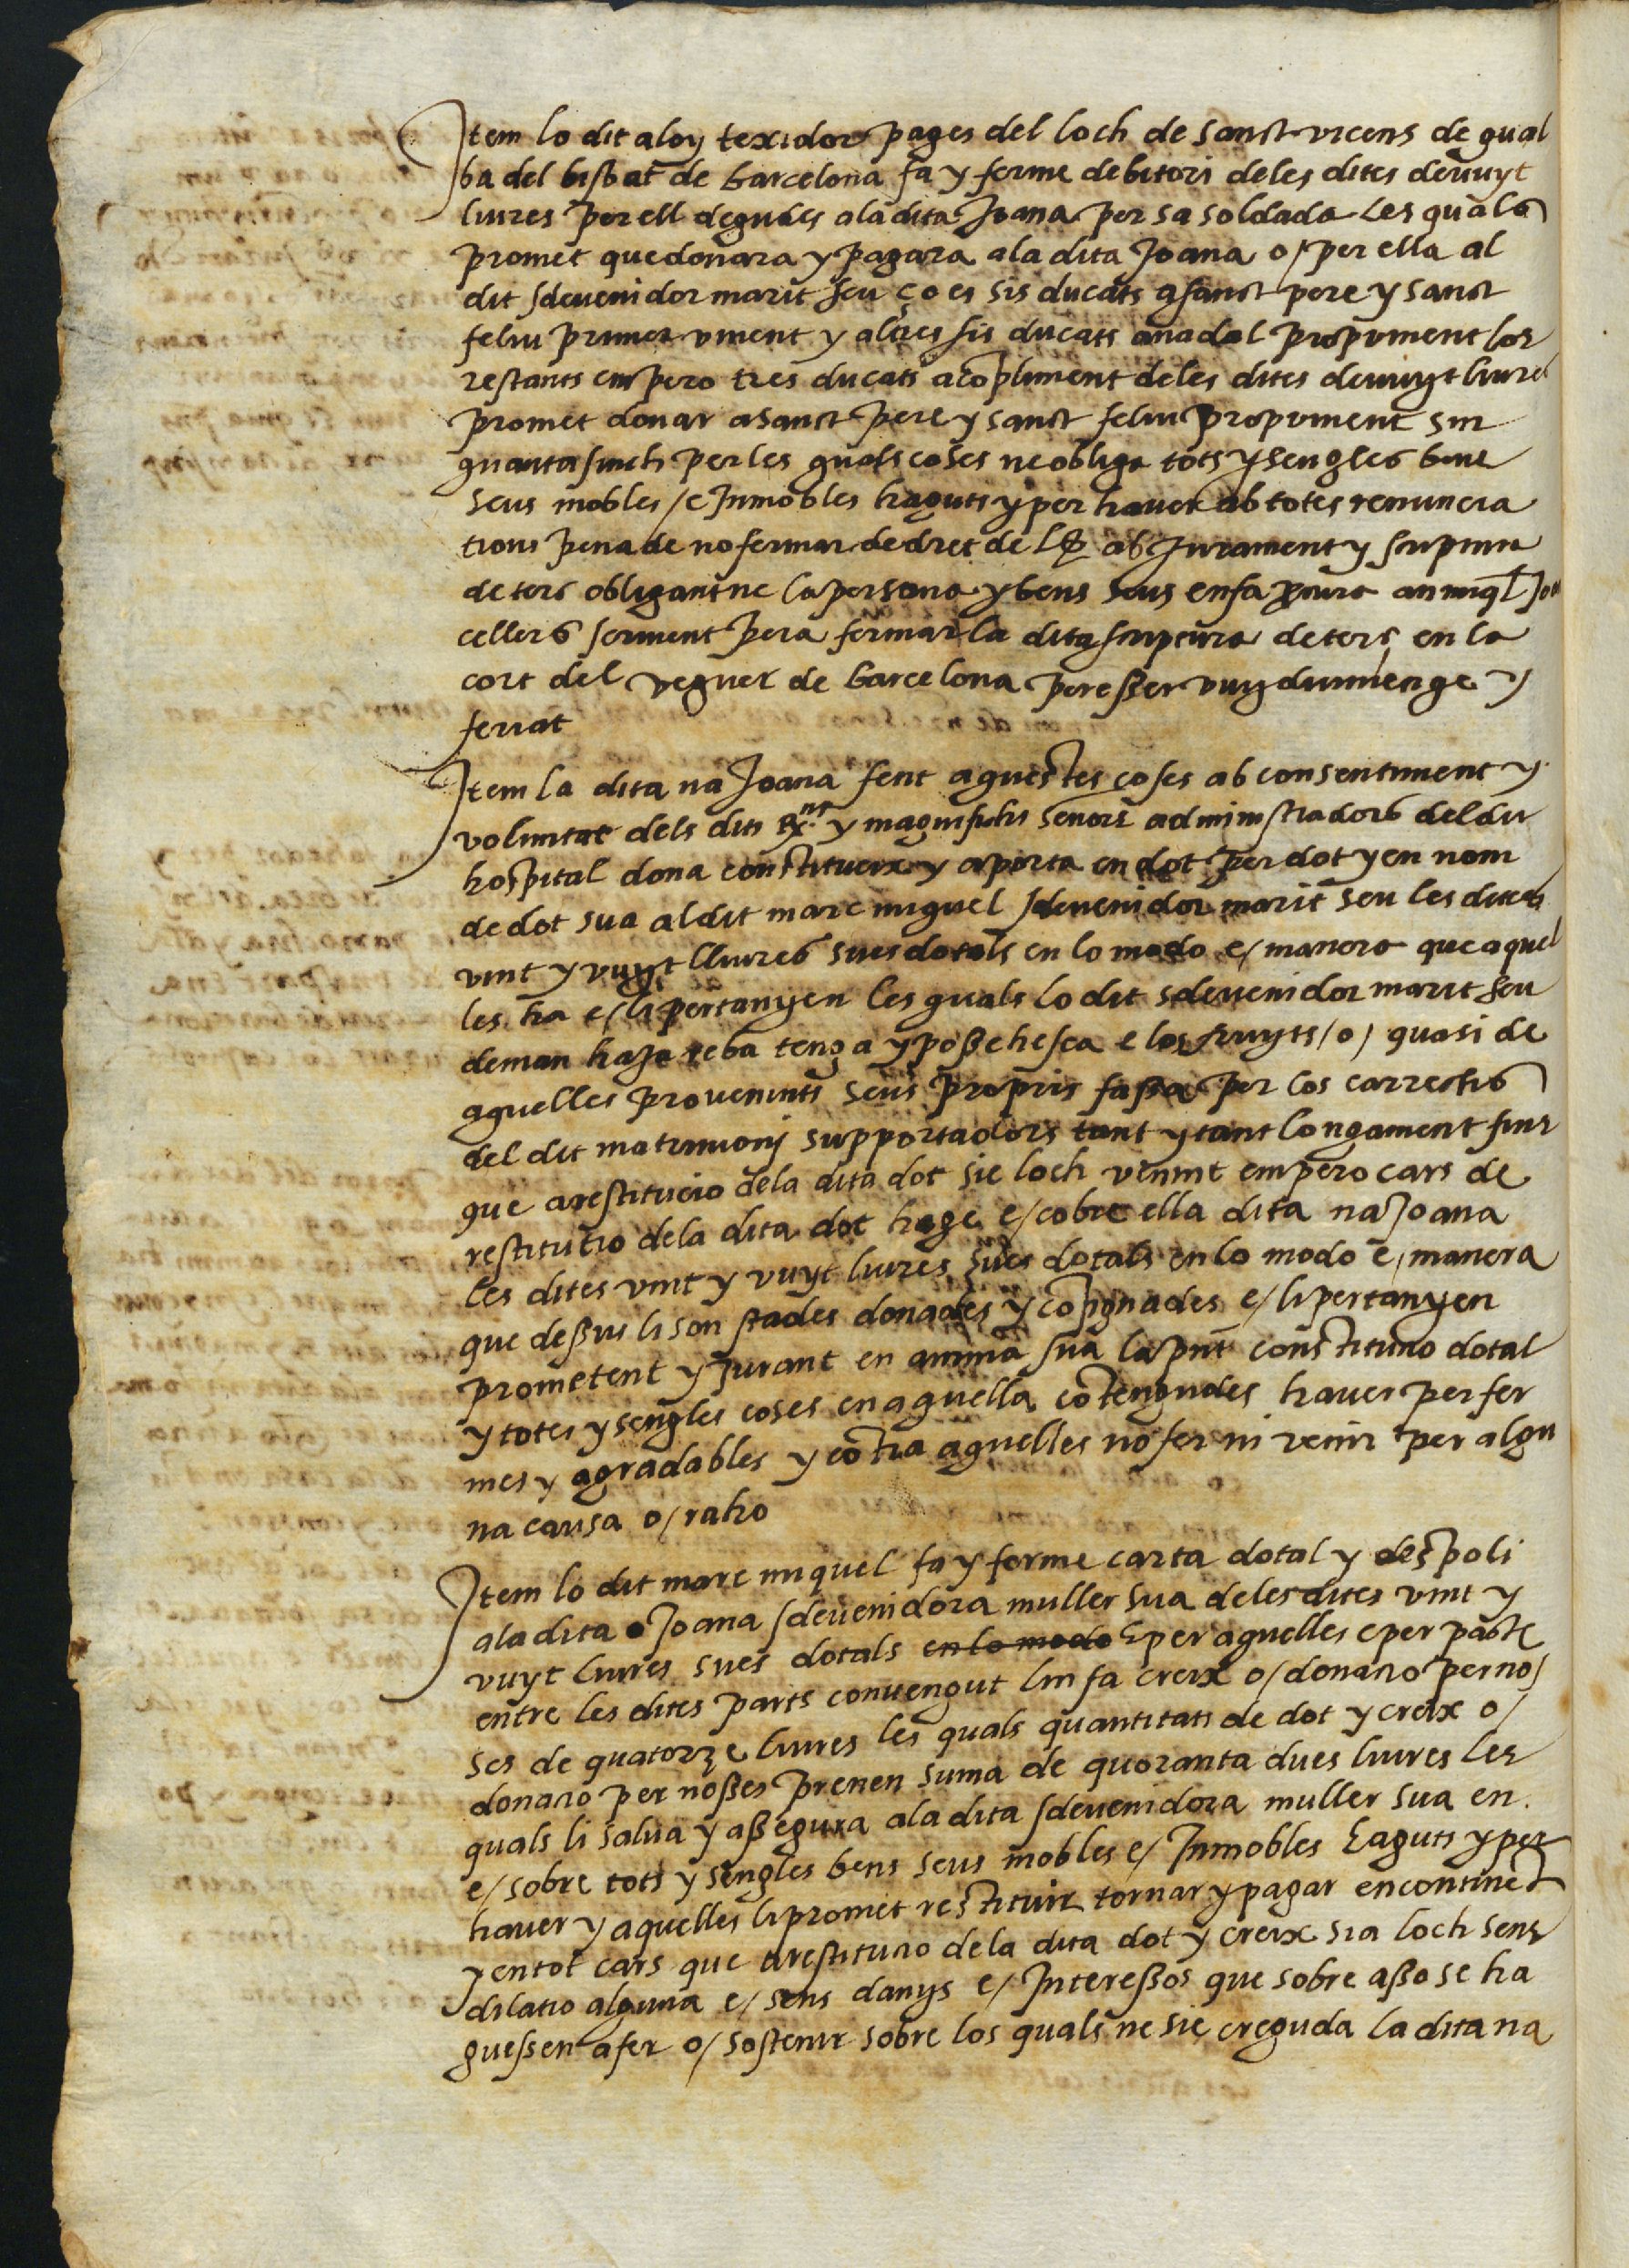 Item lo dit aloy texidor pages del loch de sanct vicens de gual
ba del bisbat de barcelona fa y ferme debitori deles dites devuyt
liures per ell degudes ala dita Joana per sa soldada les quals
promet que donara y pagara ala dita Joana o/ per ella al
dit sdevenidor marit seu ço es sis ducats a sanct pere y sanct
feliu primer vinent y altres sis ducats a nadal propvinent los
restants empero tres ducats a cõpliment deles dites devuyt liures
promet donar a sanct pere y sanct feliu propvinent sin
quanta sinch per les quals coses ne obliga tots y sengles bens
seus mobles /e Inmobles haguts y per haver ab totes renuncia
tions pena de no fermar de dret de ab Jurament y scriptura
de ters obligantne la persona y bens seus en fa anmiql Joa
cellers scrivent pera fermar la dita scriptura de ters en la
cort del veguer de barcelona per esser vuy diumenge y
feriat
Item la dita na Joana fent aquestes coses ab consentiment y
voluntat dels dits Rx.nt y magnifichs senors administradors del dit
hospital dona constitueix y aporta en dot per dot y en nom
de dot sua al dit marc miquel sdevenidor marit seu les dites
vint y vuyt lliures sues dotals en lo modo e/ manera que aquel
les ha e/ li pertanyen les quals lo dit sdevenidor marit seu
deman haja reba tenga y possehesca e los fruyts /o/ quasi de
aquelles provenints seus propris fassa per los carrechs
del dit matrimonj supportadors tant y tant longament fins
que a restitucio dela dita dot sie loch venint empero cars de
restitutio dela dita dot hage e/ cobre ella dita na Joana
les dites vint y vuyt liures sues dotals en lo modo e/ manera
que dessus li son stades donades y cõsignades e/ li pertanyen
prometent y Jurant en anima sua la pnt constitutio dotal
y totes y sengles coses en aquella cõtengudes haver per fer
mes y agradables y cõtra aquelles no fer ni venir per algu
na causa o/ raho
Item lo dit marc miquel fa y ferme carta dotal y despoli
ala dita Joana sdevenidora muller sua deles dites vint y
vuyt liures sues dotals en lo modo E per aquelles e per pacte
entre les dites parts convengut lin fa creix o/ donatio per no/
ses de quatorze liures les quals quantitats de dot y creix o/
donatio per nosses prenen suma de quoranta dues liures les
quals li salva y assegura ala dita sdevenidora muller sua en
e/ sobre tots y sengles bens seus mobles e/ Inmobles haguts y per
haver y aquelles li promet restituir tornar y pagar encontinẽt
y en tot cars que a restitutio dela dita dot y creix sia loch sens
dilatio alguna e/ sens danys e/ Interessos que sobre asso se ha
guessen a fer o/ sostenir sobre los quals ne sie creguda la dita na